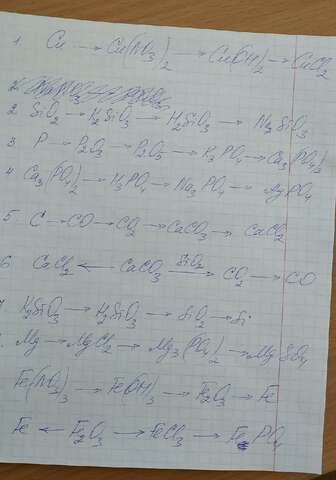 1. Cu → Cu(NO3)2 → Cu(OH)2 → CuCl2
2. SiO2 → K2SiO3 → H2SiO3 → Na2SiO3
3 P → P2O3 → P2O5 → K3PO4 → Ca3(PO4)2
4. Ca3(PO4)2 → H3PO4 → Na3PO4 → Ag3PO4
5 C → CO → CO2 → CaCO3 → CaCl2
6 CaCl2 ← CaCO3 SiO2→ CO2 → CO
K2SiO3 → H2SiO3 → SiO2 → Si
Mg → MgCl2 → Mg3(PO4)2 → MgSO4
Fe(NO3)3 → Fe(OH)3 → Fe2O3 → Fe
Fe ← Fe2O3 → FeCl3 → FePO4